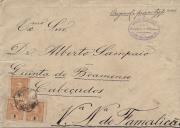 Ex.mo Snr
Dr. Alberto Sampaio
Quinta de Boamense
Cabeçudos
V.ª N.ª de Famalicão